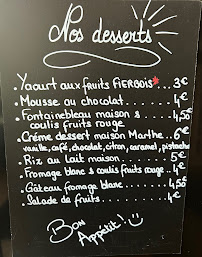 Nos desserts
. Yaourt aux fruits FIERBOIS*... 3€
. Mousse au chocolat....... 4€
. Fontainebleau maison &
coulis fruits rouge....... 4,50€
. Crème dessert maison Marthe.. 6€
vanille, café, chocolat, citron, caramel, pistache
. Riz au lait maison....... 5€
. Fromage blanc & coulis fruits rouge .... 4€
. Gâteau fromage blanc....... 4,50€
. Salade de fruits....... 4€
Bon
Appétit!